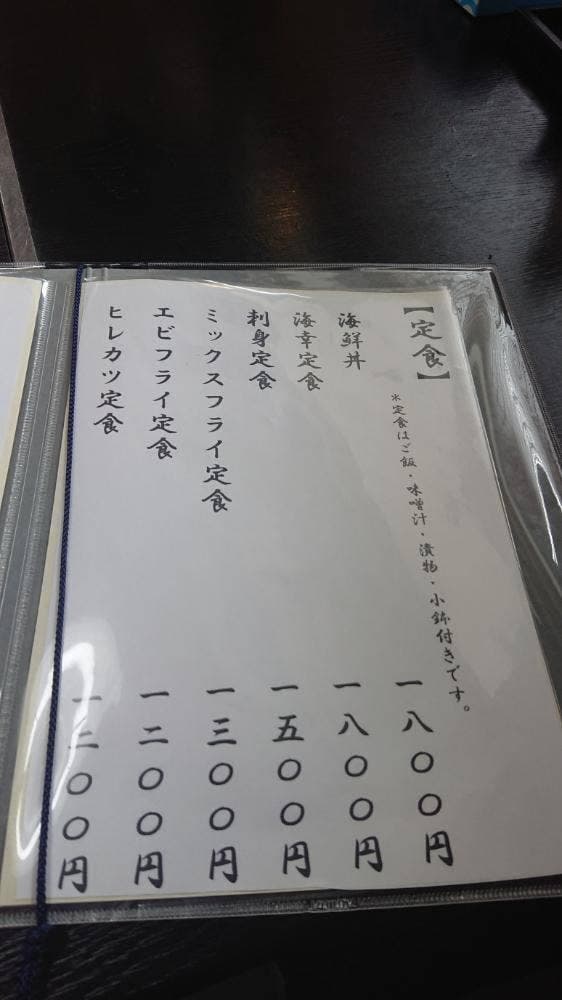 【定食】
＊定食はご飯・味噌汁・漬物・小鉢付きです。
海鮮丼 一八〇〇円
海幸定食 一八〇〇円
刺身定食 一五〇〇円
ミックスフライ定食 一三〇〇円
エビフライ定食 一二〇〇円
ヒレカツ定食 一二〇〇円